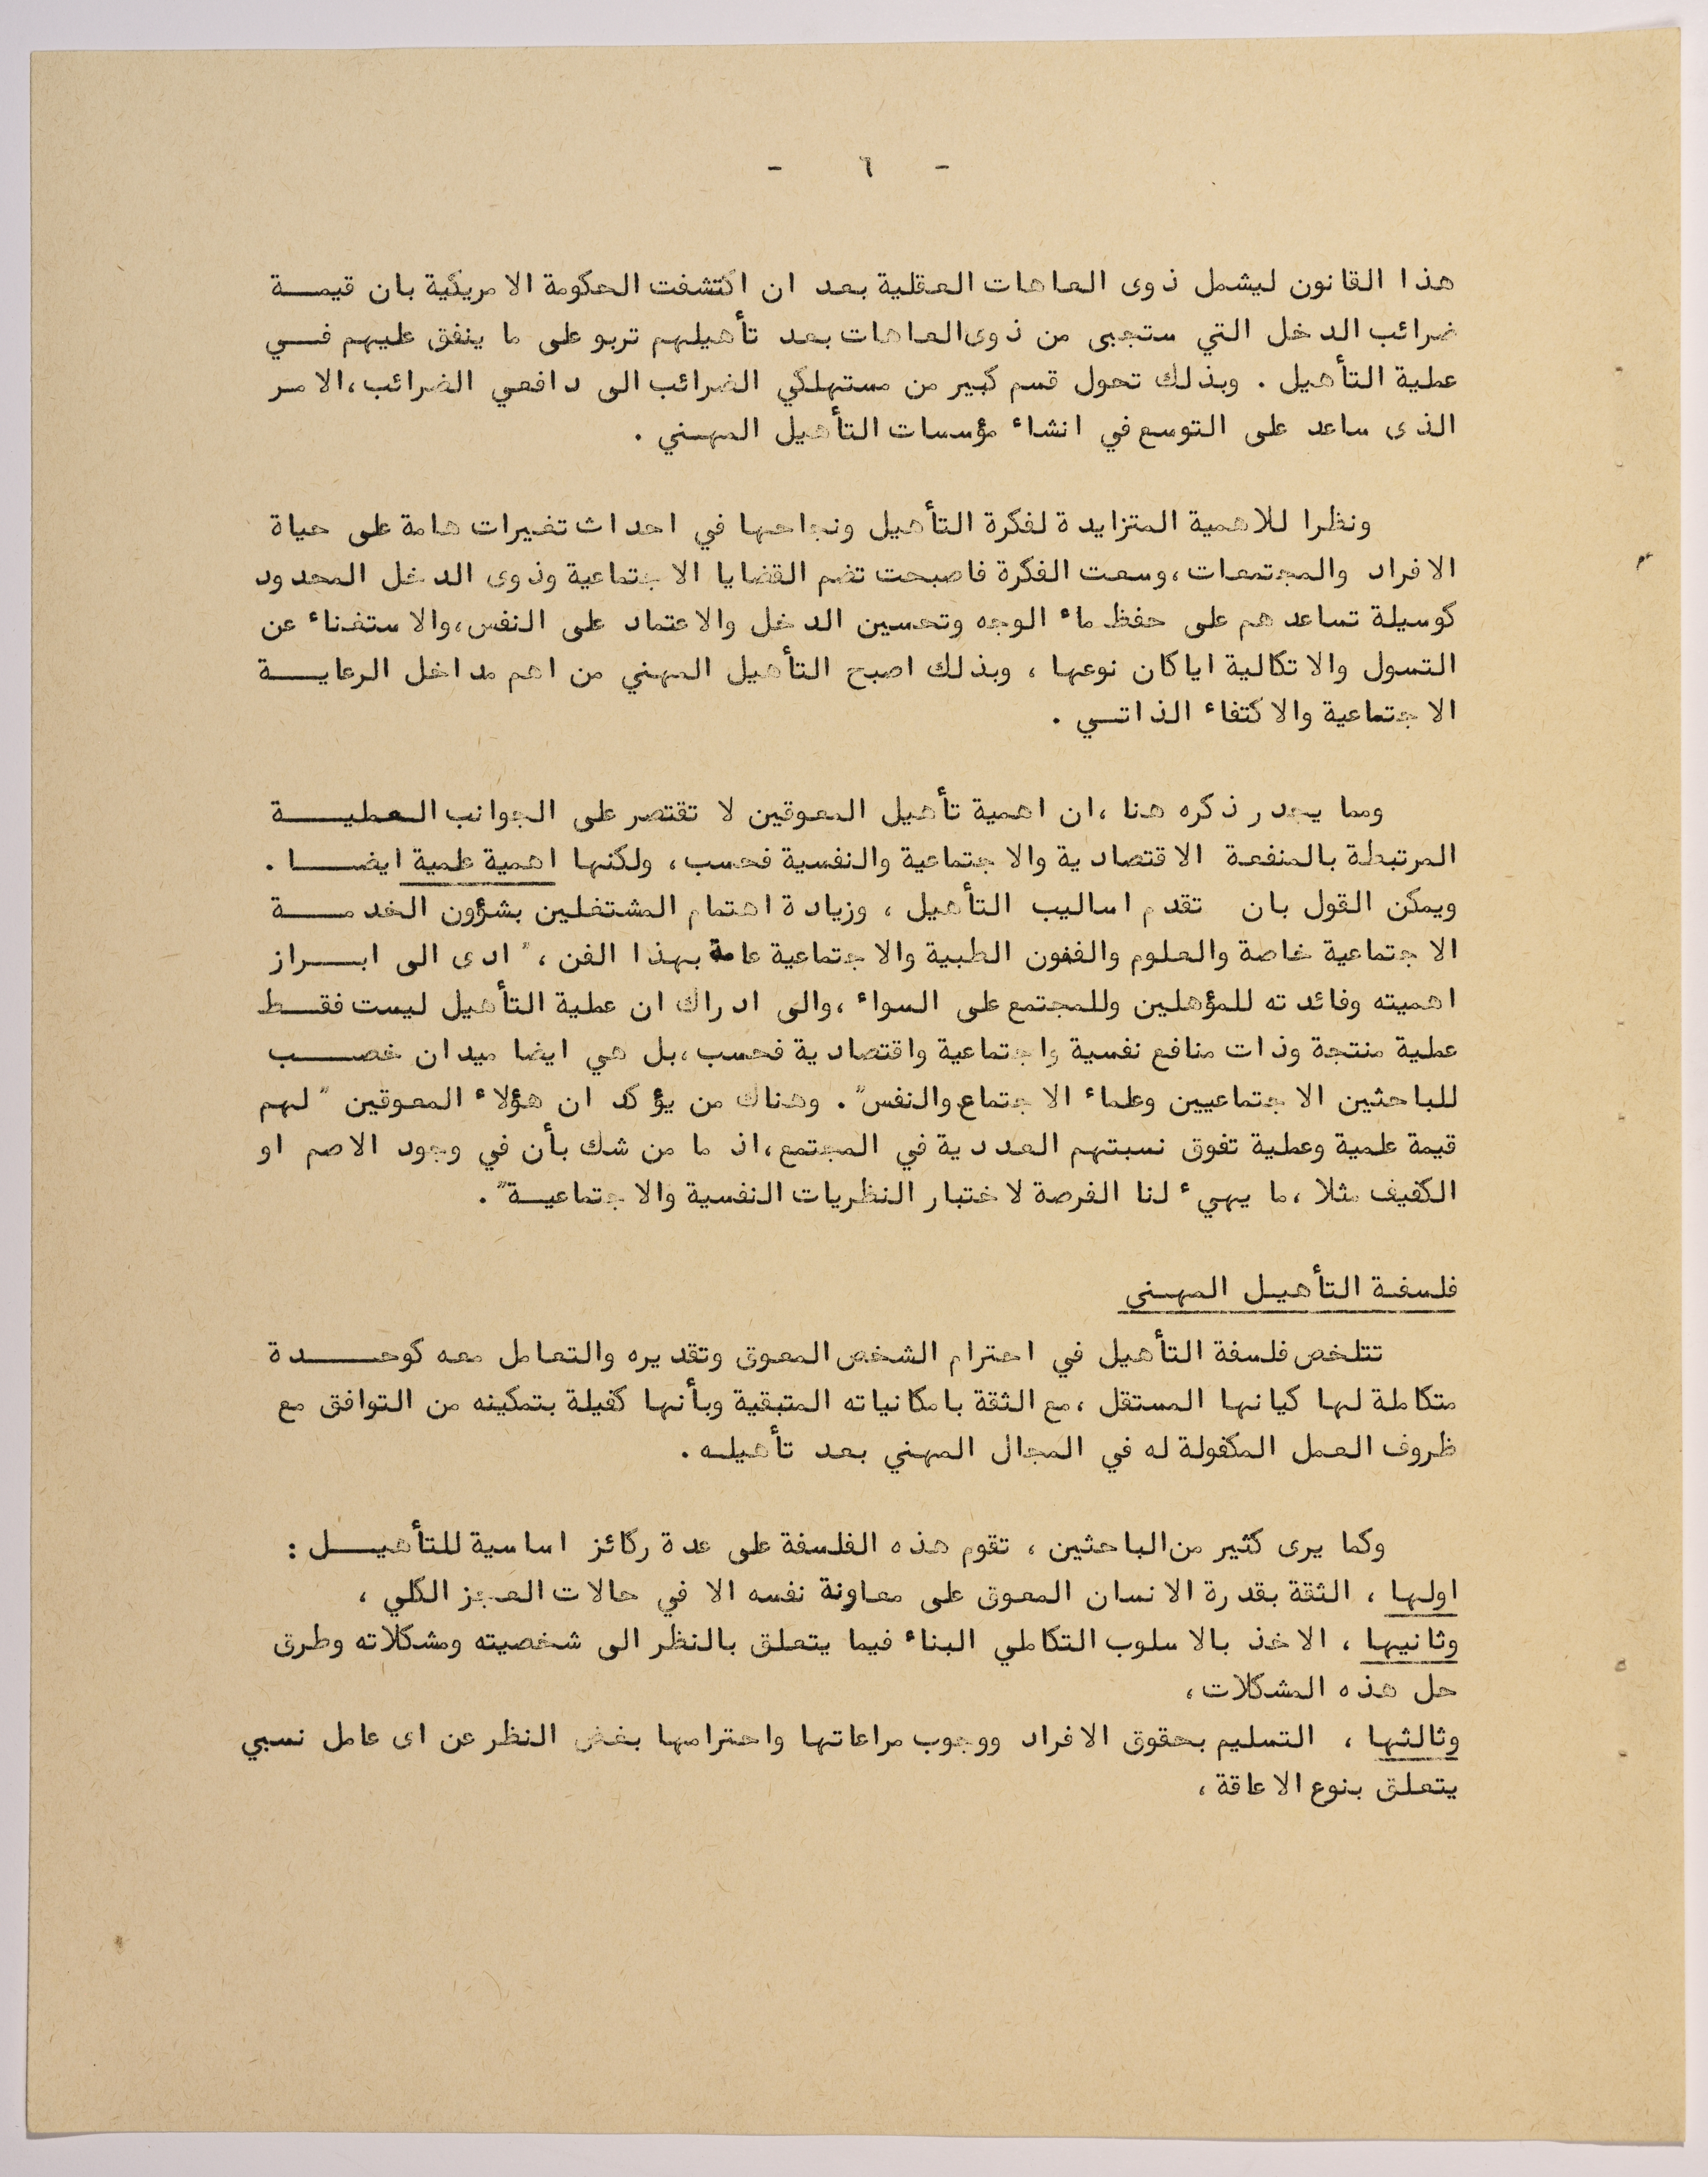 - ٦ -
هذا القانون ليشمل ذوى العاهات العقلية بعد ان اكتشفت الحكومة الامريكية بان قيمة
ضرائب الدخل التي ستجبى من ذوى العاهات بعد تأهيلهم تربو على ما ينفق عليهم في
عملية التأهيل . وبذلك تحول قسم كبير من مستهلكي الضرائب الى دافعي الضرائب، الامر
الذى ساعد على التوسع في انشاء مؤسسات التأهيل المهني .
ونظرا للاهمية المتزايدة لفكرة التأهيل ونجاحها في احداث تغيرات هامة على حياة
الافراد والمجتمعات، وسعت الفكرة فاصبحت تضم القضايا الاجتماعية وذوى الدخل المحدود
كوسيلة تساعدهم على حفظ ماء الوجه وتحسين الدخل والاعتماد على النفس، والاستغناء عن
التسول والاتكالية اياكان نوعها ، وبذلك اصبح التأهيل المهني من اهم مداخل الرعاية
الاجتماعية والاكتفاء الذاتي .
ومما يجدر ذكره هنا ، ان اهمية تأهيل المعوقين لا تقتصر على الجوانب العملية
المرتبطة بالمنفعة الاقتصادية والاجتماعية والنفسية فحسب، ولكنها اهمية علمية ايضا .
ويمكن القول بان تقدم اساليب التأهيل ، وزيادة اهتمام المشتغلين بشؤون الخدمة
الاجتماعية خاصة والعلوم والفنون الطبية والاجتماعية عامة بهذا الفن ، " ادى الى ابراز
اهميته وفائدته للمؤهلين وللمجتمع على السواء ، والى ادراك ان عملية التأهيل ليست فقط
عملية منتجة وذات منافع نفسية واجتماعية واقتصادية فحسب، بل هي ايضا ميدان خصب
للباحثين الاجتماعيين وعلماء الاجتماع والنفس" . وهناك من يؤكد ان هؤلاء المعوقين " لهم
قيمة علمية وعملية تفوق نسبتهم العددية في المجتمع، اذ ما من شك بأن في وجود الاصم او
الكفيف مثلا ، ما يهيء لنا الفرصة لاختبار النظريات النفسية والاجتماعية" .
فلسفة التأهيل المهني
تتلخص فلسفة التأهيل في احترام الشخص المعوق وتقديره والتعامل معه كوحدة
متكاملة لها كيانها المستقل ، مع الثقة بامكانياته المتبقية وبأنها كفيلة بتمكينه من التوافق مع
ظروف العمل المكفولة له في المجال المهني بعد تأهيله .
وكما يرى كثير من الباحثين ، تقوم هذه الفلسفة على عدة ركائز اساسية للتأهيل :
اولها ، الثقة بقدرة الانسان المعوق على معاونة نفسه الا في حالات العجز الكلي ،
وثانيها ، الاخذ بالاسلوب التكاملي البناء فيما يتعلق بالنظر الى شخصيته ومشكلاته وطرق
حل هذه المشكلات،
وثالثها ، التسليم بحقوق الافراد ووجوب مراعاتها واحترامها بغض النظر عن اى عامل نسبي
يتعلق بنوع الاعاقة ،